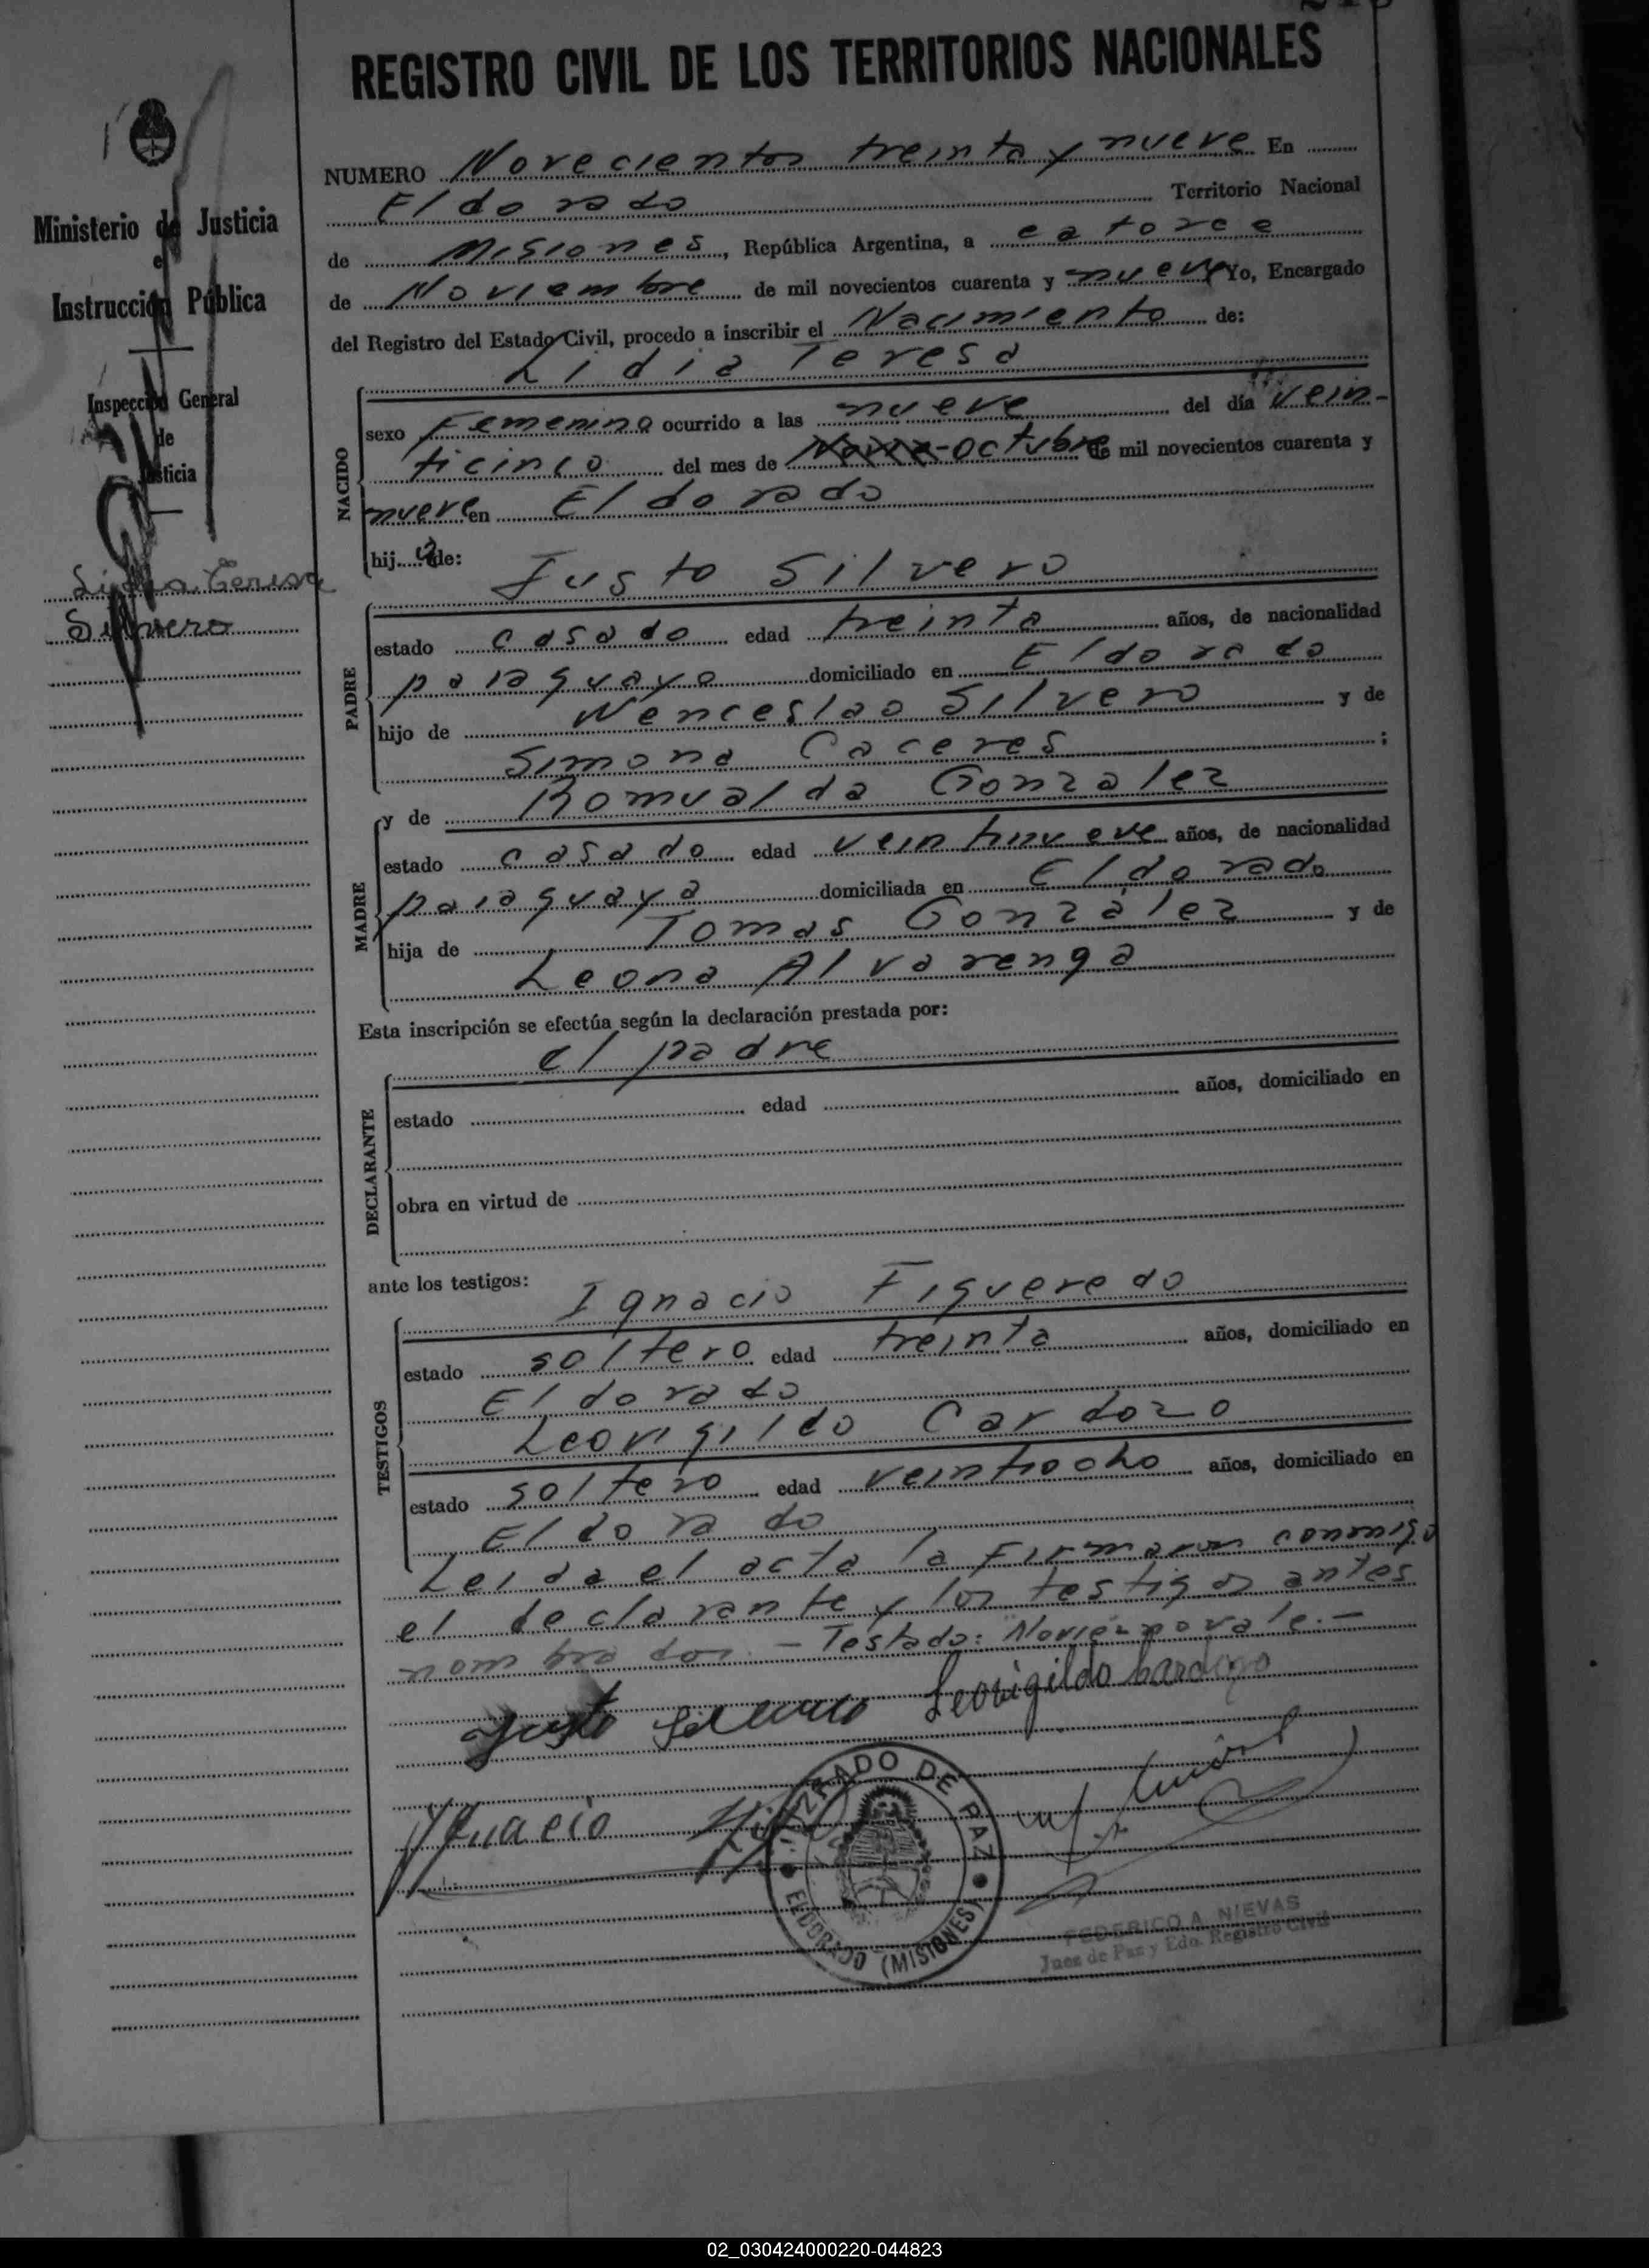 REGISTRO CIVIL DE LOS TERRITORIOS NACIONALES
Ministerio de Justicia
e
Instrucción Pública
Inspección General
de
Justicia
Lidia Teresa
Silvero
NUMERO Novecientos treinta y nueve En
Eldorado Territorio Nacional
de Misiones, República Argentina, a catorce
de Noviembre de mil novecientos cuarenta y nueve Yo, Encargado
del Registro del Estado Civil, procedo a inscribir el Nacimiento de:
Lidia Teresa
NACIDO
sexo Femenino ocurrido a las nueve del día vein-
ticinco del mes de octubre de mil novecientos cuarenta y
nueve en Eldorado
hija de: Justo Silvero
PADRE
estado casado edad treinta años, de nacionalidad
paraguayo domiciliado en Eldorado
hijo de Wenceslao Silvero y de
Simona Caceres ;
MADRE
y de Romualda Gonzalez
estado casado edad veintinueve años, de nacionalidad
paraguaya domiciliada en Eldorado
hija de Tomas Gonzalez y de
Leona Alvarenga
Esta inscripción se efectúa según la declaración prestada por:
el padre
DECLARANTE
estado edad años, domiciliado en
obra en virtud de
ante los testigos: Ignacio Figueredo
TESTIGOS
estado soltero edad treinta años, domiciliado en
Eldorado
Leovigildo Cardozo
estado soltero edad veintiocho años, domiciliado en
Eldorado
Leida el acta la Firmaron conmigo
el declarante y los testigos antes
nombrados. - Testado: no vale.-
Justo Silvero Leovigildo Cardozo
Ygnacio
JUZGADO DE PAZ
ELDORADO (MISIONES)
FEDERICO A. NIEVAS
Juez de Paz y Edo. Registro Civil
02_030424000220-044823